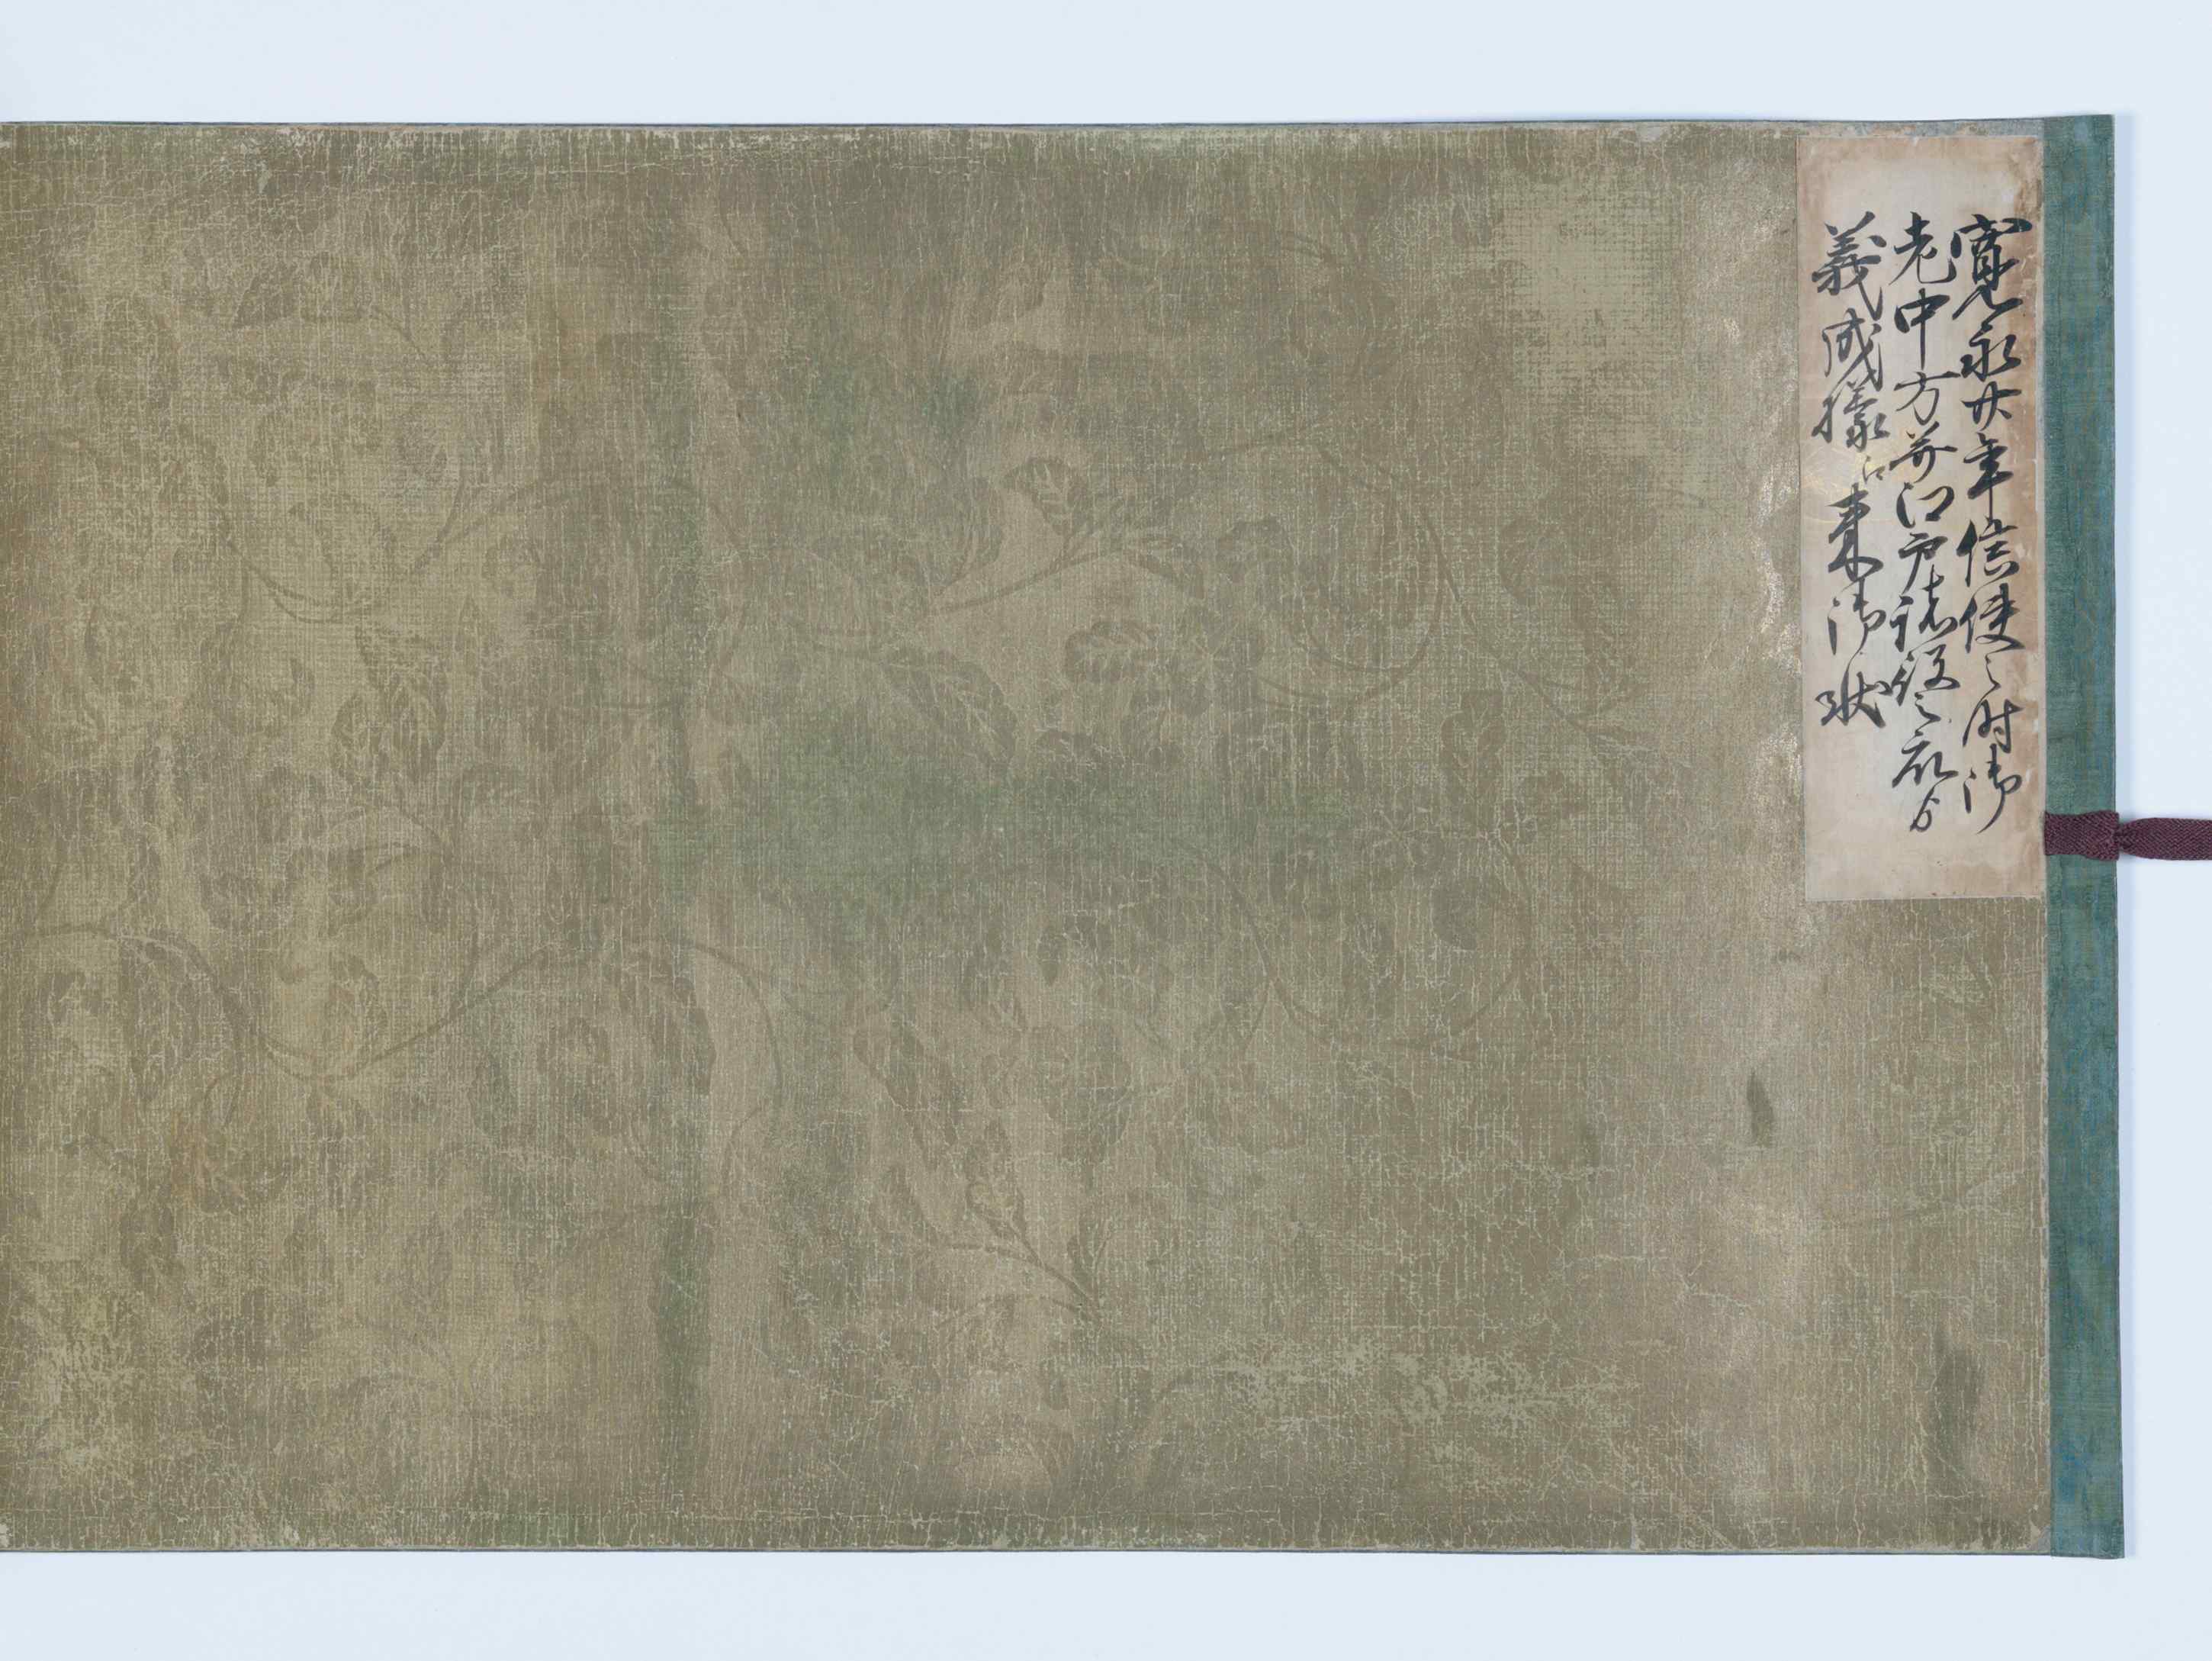 寛永廿年信使之時御
老中方并江戸諸役之衆ゟ
義成様江来御状